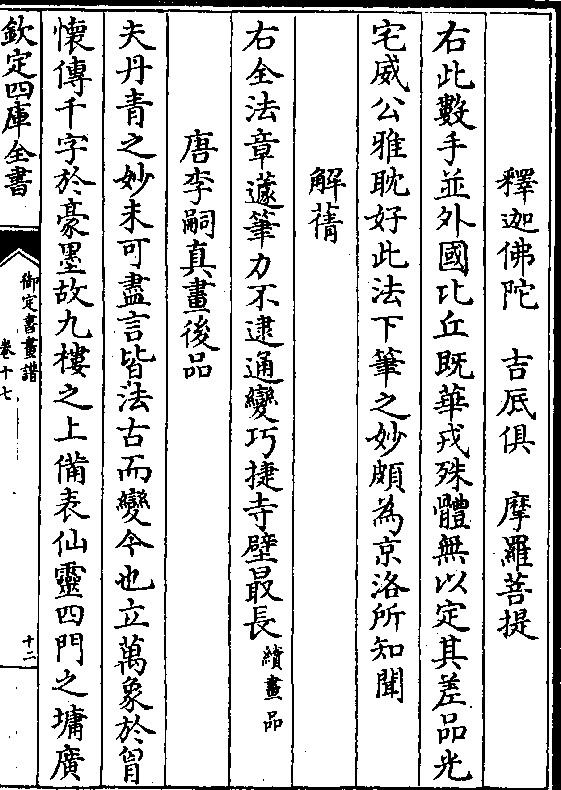 釋迦佛陀　吉厎俱　摩羅菩提
右此數手並外國比丘既華戎殊體無以定其差品光
宅威公雅耽好此法下筆之妙頗為京洛所知聞
解蒨
右全法章蘧筆力不逮通變巧捷寺壁最長續畫品
唐李嗣真畫後品
夫丹青之妙未可盡言皆法古而變今也立萬象於胷
懷傳千字於豪墨故九樓之上備表仙靈四門之墉廣
欽定四庫全書
御定書畫譜
卷十七
十二